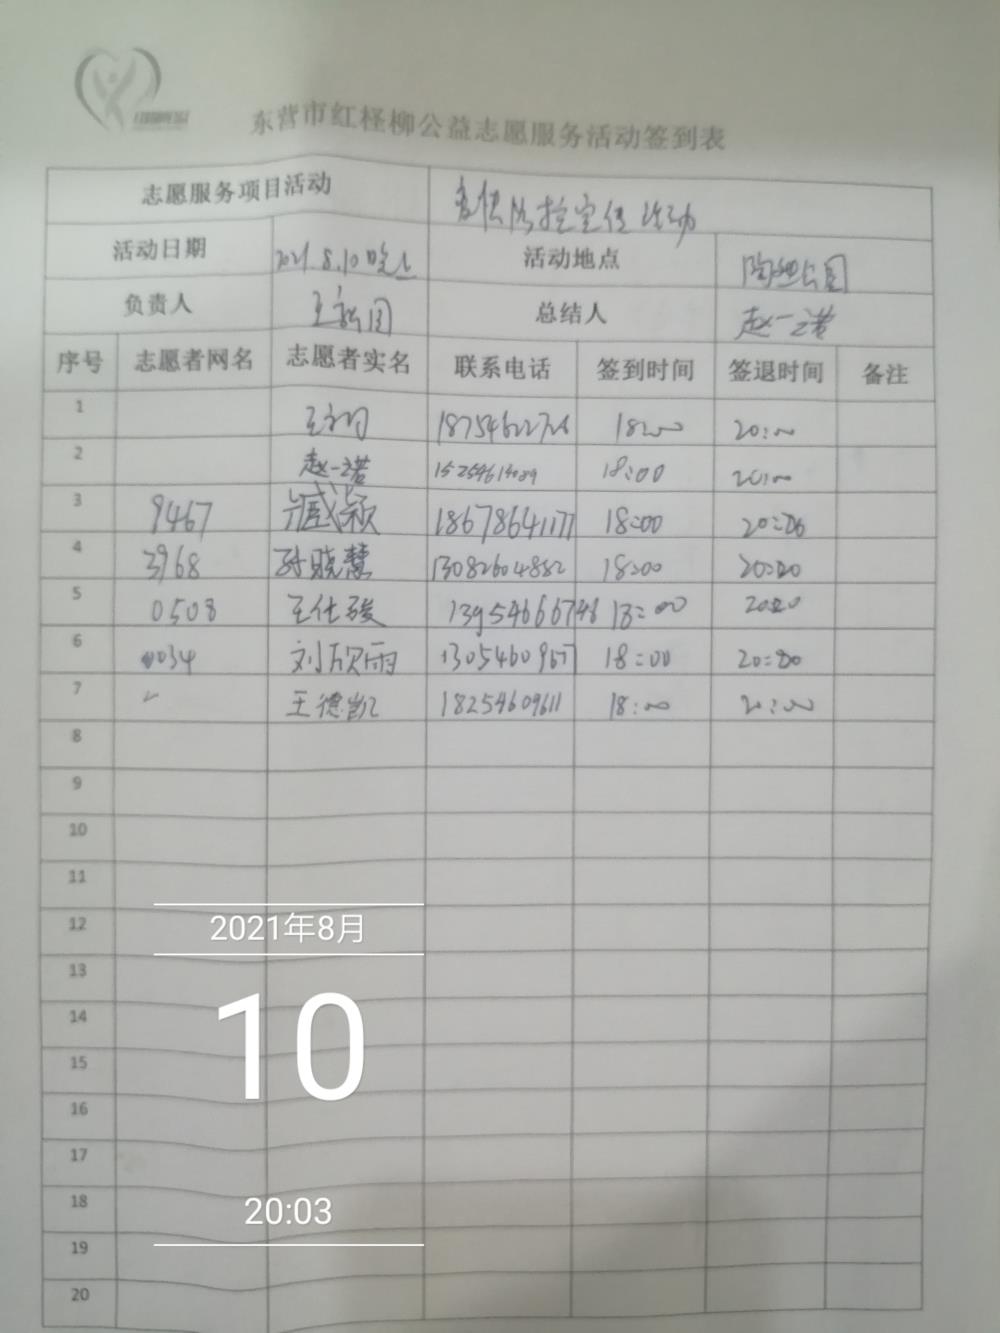 东营市红柽柳公益志愿服务活动签到表
志愿服务项目活动 疫情防控宣传活动
活动日期 2021.8.10晚上 活动地点 公园
负责人 王 总结人 赵一诺
序号 志愿者网名 志愿者实名 联系电话 签到时间 签退时间 备注
1 王 18:00 20:00
2 赵一诺 18:00 20:00
3 9467 臧颖 18678641177 18:00 20:00
4 3968 孙晓慧 13082604882 18:00 20:00
5 0508 王仕骏 13954666746 18:00 20:00
6 0034 刘欣雨 18:00 20:00
7 王德凯 18254609611 18:00 20:00
8
9
10
11
12
13
14
15
16
17
18
19
20
2021年8月
10
20:03